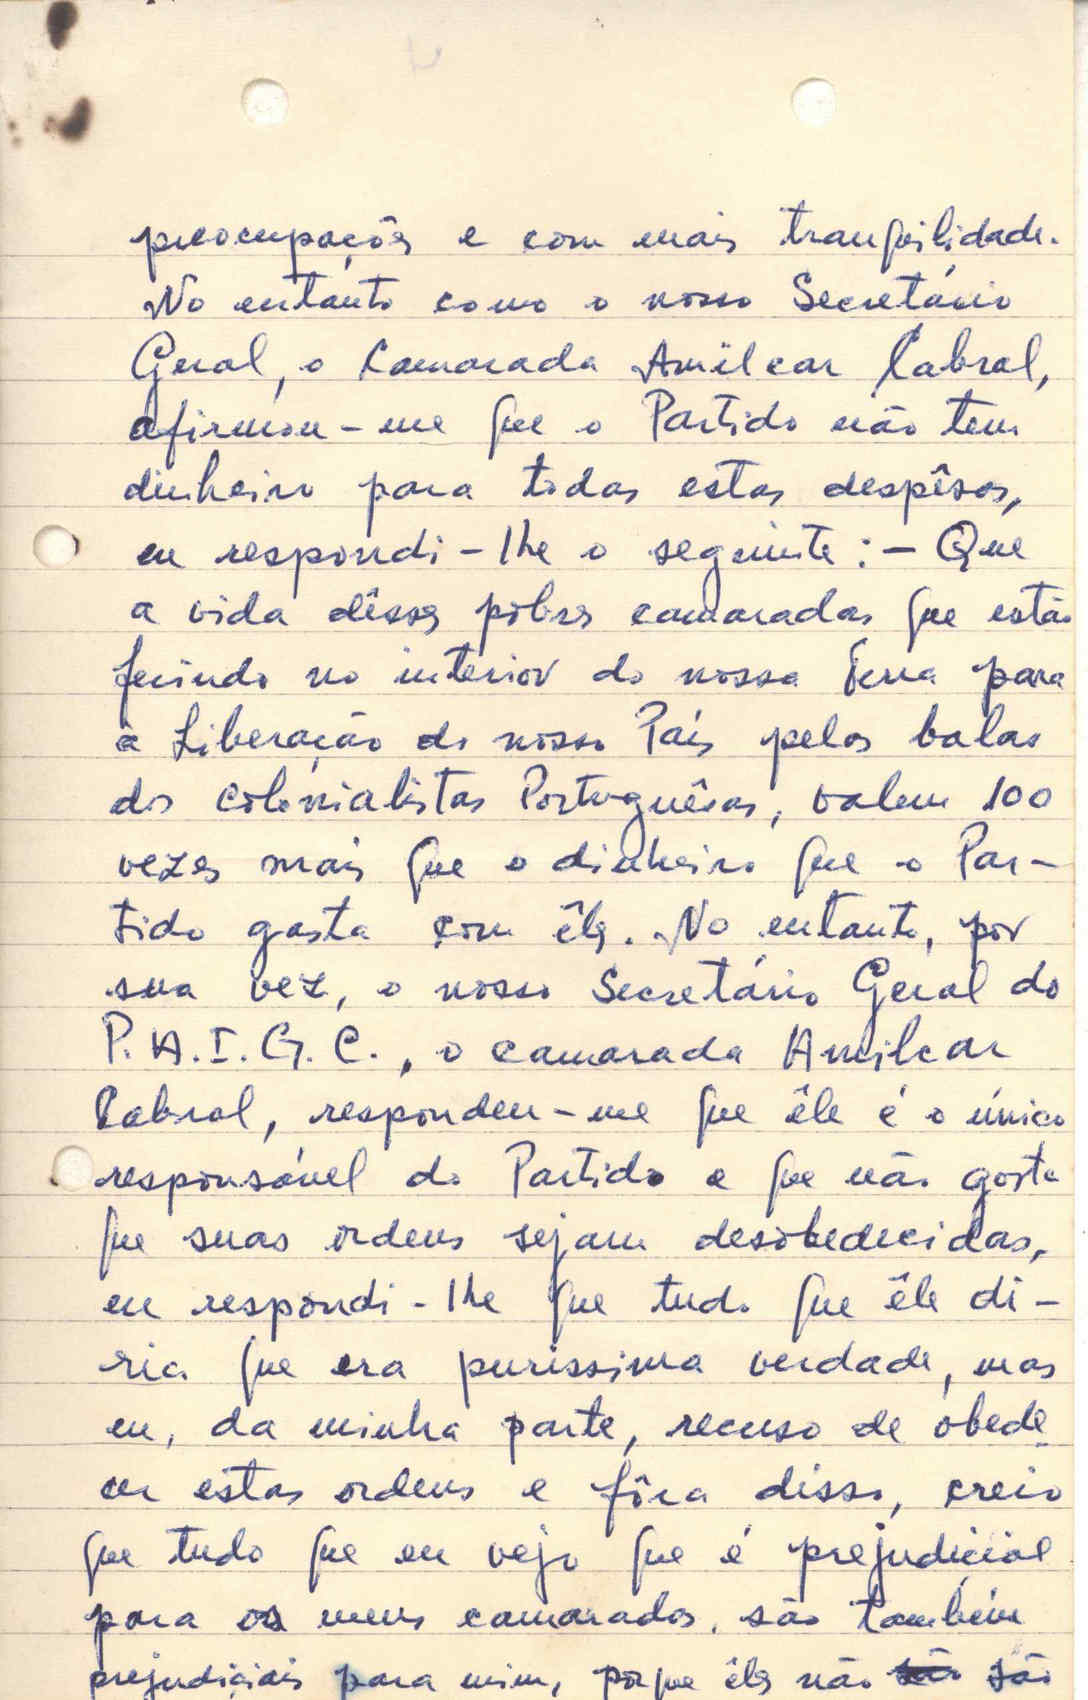 preocupações e com mais tranqüilidade.
No entánto como o nosso Secretário
Geral, o Camarada Amílcar Cabral,
afirmou-me que o Partido não tem
dinheiro para todas estas despêsas,
eu respondi-lhe o seguinte: — Que
a vida dêsses pobres camaradas que estão
no interior da nossa terra para
a Liberação do nosso País pelas balas
dos colonialistas Portuguêsas, valem 100
vezes mais que o dinheiro que o Par-
tido gasta com êles. No entanto, por
sua vez, o nosso Secretário Geral do
P.A.I.G.C., o camarada Amilcar
Cabral, respondeu-me que êle é o único
responsável do Partido e que não gosta
que suas ordens sejam desobedecidas,
eu respondi-lhe que tudo que êle di-
ria que era puríssima verdade, mas
eu, da minha parte, recuso de obede
cer estas ordens e fôra disso, creio
que tudo que eu vejo que é prejudicial
para os meus camaradas, são também
prejudiciais para mim, porque êles não são